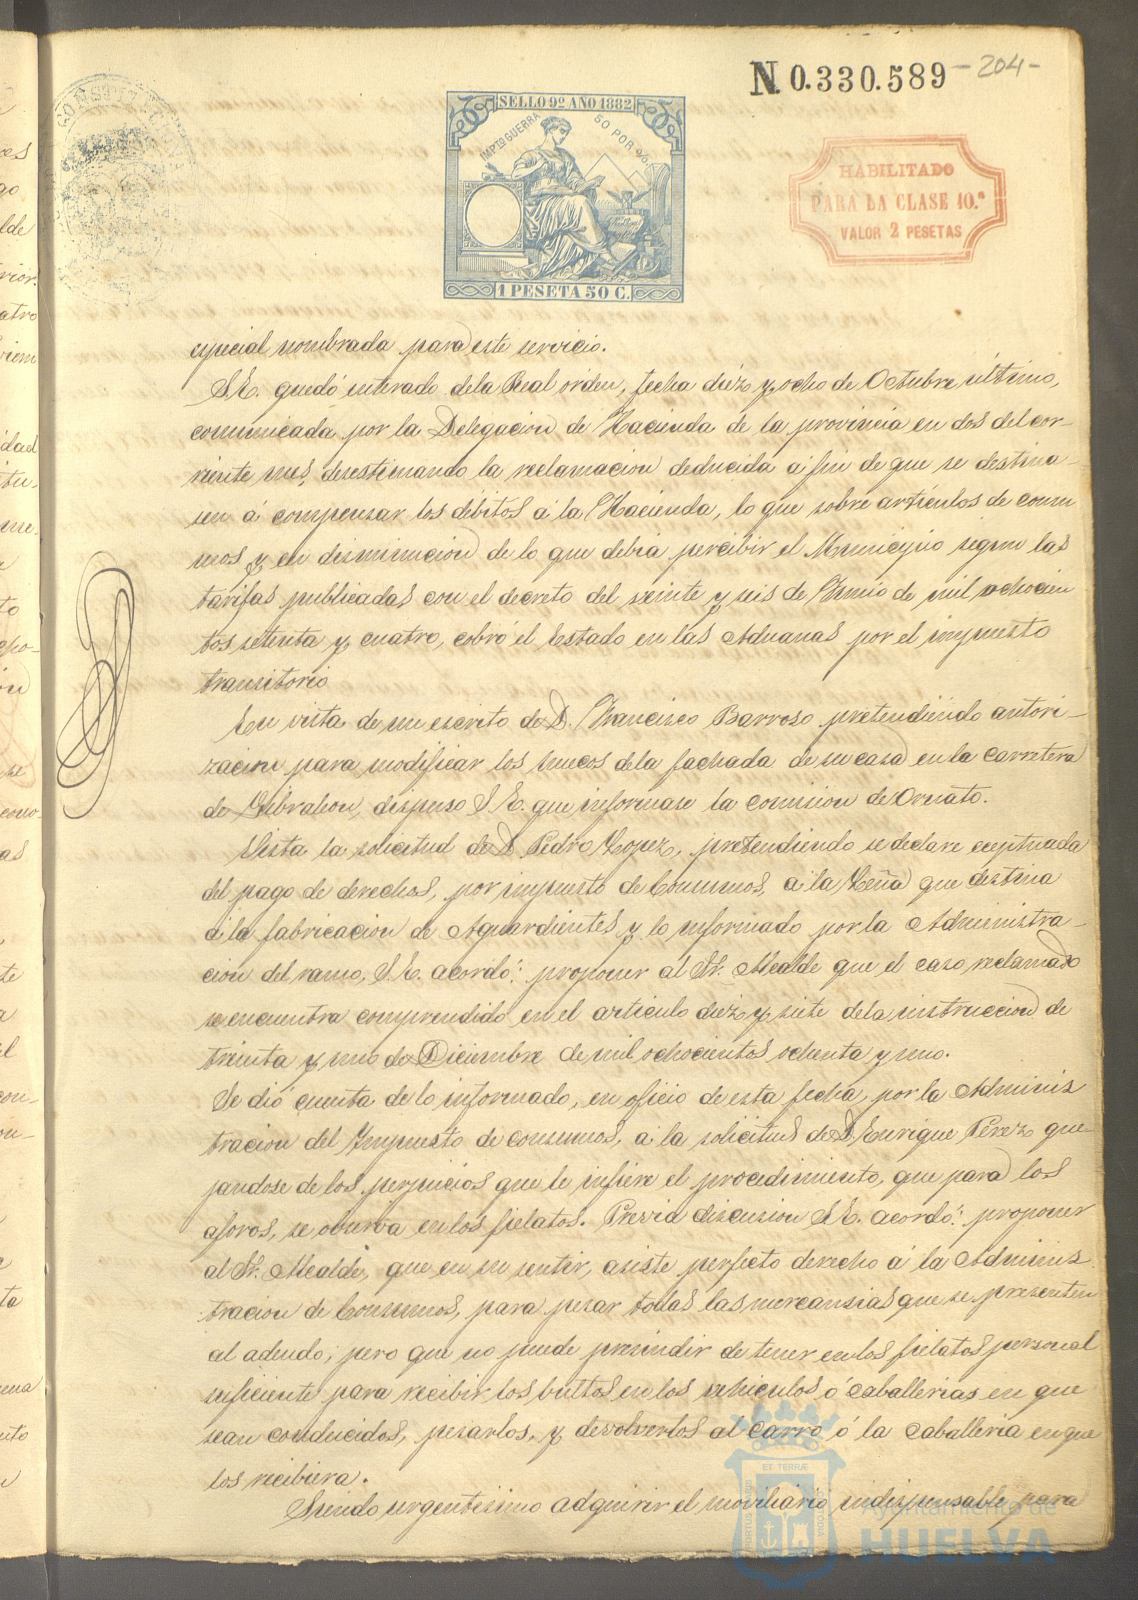 N 0.330.589 - 204 -
SELLO 9º AÑO 1882
IMPTO GUERRA 50 POR %
1 PESETA 50 C.
HABILITADO
PARA LA CLASE 10.ª
VALOR 2 PESETAS
especial nombrada para este servicio.
S.E. quedó enterado dela Real orden, fecha diez y ocho de Octubre último,
comunicada por la Delegacion de Hacienda de la provincia en dos del cor-
riente mes, desestimando la reclamacion deducida a fin de que se destina-
sen á compensar los debitos á la Hacienda, lo que sobre artículos de consu
mos y en disminucion de lo que debia percibir el Municipio segun las
tarifas publicadas con el decreto del veinte y seis de Junio de mil ochocien
tos setenta y cuatro, cobró el Estado en las Aduanas por el impuesto
transitorio
En vista de un escrito de D. Francisco Barroso pretendiendo autori-
zacion para modificar los huecos dela fachada de su casa en la carretera
de Gibraleon, dispuso S.E. que informase la comision de Ornato.
Vista la solicitud de D Pedro Lopez, pretendiendo se declare eceptuada
del pago de derechos, por impuesto de Consumos, a la Leña que destina
á la fabricacion de Aguardientes y lo informado por la Administra-
cion del ramo, S.E. acordó: proponer al Sr. Alcalde que el caso reclamado
se encuentra comprendido en el articulo diez y siete dela instruccion de
treinta y uno de Diciembre de mil ochocientos ochenta y uno.
Se dió cuenta de lo informado, en oficio de esta fecha, por la Adminis
tracion del Impuesto de consumos, a la solicitud de D Enrique Perez que-
jandose de los perjuicios que le infiere el procedimiento, que para los
aforos, se observa en los fielatos. Previa discusion S.E. acordó: proponer
al Sr. Alcalde, que en su sentir, asiste perfecto derecho á la Adminis
tracion de Consumos, para pesar todas las mercansias que se presenten
al adeudo; pero que no puede presindir de tener en los fielatos personal
suficiente para recibir los bultos en los vehiculos ó caballerias en que
sean conducidos, pesarlos, y devolverlos al carro ó la caballeria en que
los recibiera.
Siendo urgentisimo adquirir el moviliario indispensable para
Ayuntamiento de
HUELVA